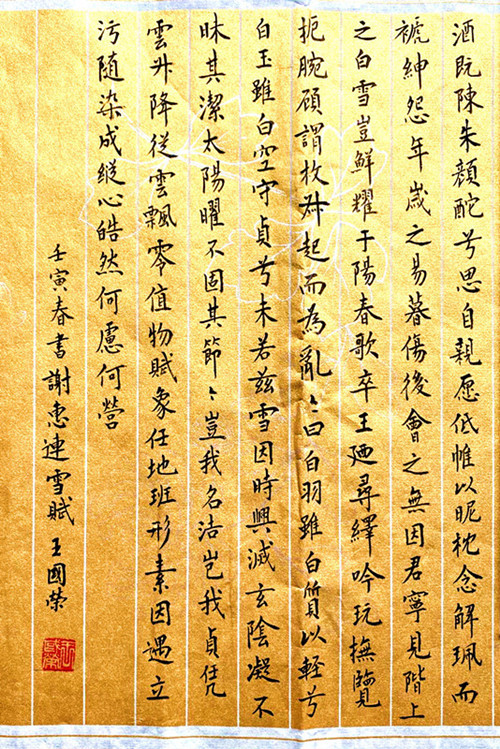 酒既陳朱顔酡兮思自親愿低帷以昵枕念解珮而
褫紳怨年歲之易暮傷後會之無因君寧見階上
之白雪豈鮮耀于陽春歌卒王廼尋繹吟玩撫覽
扼腕顧謂枚叔起而為亂〻曰白羽雖白質以輕兮
白玉雖白空守貞兮未若兹雪因時興滅玄陰凝不
昧其潔太陽曜不固其節〻豈我名洁岂我貞凭
雲升降從雲飄零值物賦象任地班形素因遇立
污隨染成縱心皓然何慮何營
壬寅春書謝惠連雪賦 王國荣